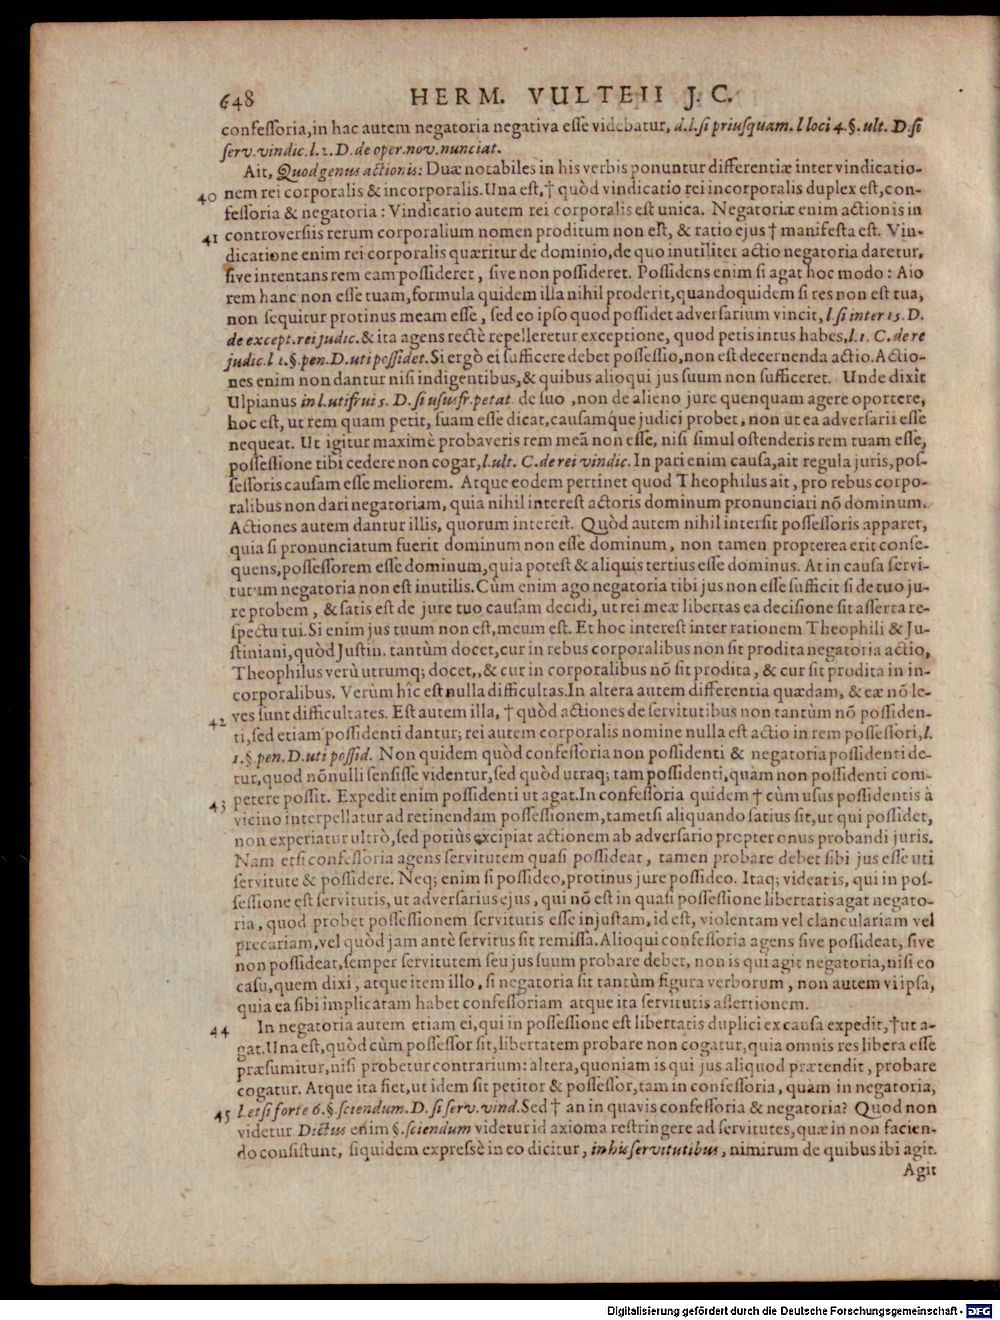 648 HERM. VULTEII J. C.
confeſſoria, in hac autem negatoria negativa eſſe videbatur, d.l.ſi priuſquam. l loci 4.§. ult. D.ſi
ſerv. vindic. l. 2. D. de oper. nov. nunciat.
Ait, Quod genus actionis: Duæ notabiles in his verbis ponuntur differentiæ inter vindicatio-
40 nem rei corporalis & incorporalis. Una eſt, † quòd vindicatio rei incorporalis duplex eſt, con-
feſſoria & negatoria: Vindicatio autem rei corporalis eſt unica. Negatoriæ enim actionis in
41 controverſiis rerum corporalium nomen proditum non eſt, & ratio ejus † manifeſta eſt. Vin-
dicatione enim rei corporalis quæritur de dominio, de quo inutiliter actio negatoria daretur,
ſive intentans rem eam poſſideret, ſive non poſſideret. Poſſidens enim ſi agat hoc modo: Aio
rem hanc non eſſe tuam, formula quidem illa nihil proderit, quandoquidem ſi res non eſt tua,
non ſequitur protinus meam eſſe, ſed eo ipſo quod poſſidet adverſarium vincit, l.ſi inter 15. D.
de except. rei judic. & ita agens rectè repelleretur exceptione, quod petis intus habes, l. 1. C. de re
judic. l 1. §. pen. D. uti poſſidet. Si ergò ei ſufficere debet poſſeſſio, non eſt decernenda actio. Actio-
nes enim non dantur niſi indigentibus, & quibus alioqui jus ſuum non ſufficeret. Unde dixit
Ulpianus in l. uti frui 5. D. ſi uſusfr. petat. de ſuo, non de alieno jure quenquam agere oportere,
hoc eſt, ut rem quam petit, ſuam eſſe dicat, cauſamq́ue judici probet, non ut ea adverſarii eſſe
nequeat. Ut igitur maximè probaveris rem meã non eſſe, niſi ſimul oſtenderis rem tuam eſſe,
poſſeſſione tibi cedere non cogar, l. ult. C. de rei vindic. In pari enim cauſa, ait regula juris, poſ-
ſeſſoris cauſam eſſe meliorem. Atque eodem pertinet quod Theophilus ait, pro rebus corpo-
ralibus non dari negatoriam, quia nihil intereſt actoris dominum pronunciari nõ dominum.
Actiones autem dantur illis, quorum intereſt. Quòd autem nihil interſit poſſeſſoris apparet,
quia ſi pronunciatum fuerit dominum non eſſe dominum, non tamen propterea erit conſe-
quens, poſſeſſorem eſſe dominum, quia poteſt & aliquis tertius eſſe dominus. At in cauſa ſervi-
tutum negatoria non eſt inutilis. Cùm enim ago negatoria tibi jus non eſſe ſufficit ſi de tuo ju-
re probem, & ſatis eſt de jure tuo cauſam decidi, ut rei meæ libertas ea deciſione ſit aſſerta re-
ſpectu tui. Si enim jus tuum non eſt, meum eſt. Et hoc intereſt inter rationem Theophili & Ju-
ſtiniani, quòd Juſtin. tantùm docet, cur in rebus corporalibus non ſit prodita negatoria actio,
Theophilus verù utrumq; docet,, & cur in corporalibus nõ ſit prodita, & cur ſit prodita in in-
corporalibus. Verùm hîc eſt nulla difficultas. In altera autem differentia quædam, & eæ nõ le-
42 ves ſunt difficultates. Eſt autem illa, † quòd actiones de ſervitutibus non tantùm nõ poſſiden-
ti, ſed etiam poſſidenti dantur; rei autem corporalis nomine nulla eſt actio in rem poſſeſſori, l.
1.§. pen. D. uti poſſid. Non quidem quòd confeſſoria non poſſidenti & negatoria poſſidenti de-
tur, quod nõnulli ſenſiſſe videntur, ſed quòd utraq; tam poſſidenti, quàm non poſſidenti com-
43 petere poſſit. Expedit enim poſſidenti ut agat. In confeſſoria quidem † cùm uſus poſſidentis à
vicino interpellatur ad retinendam poſſeſſionem, tametſi aliquando ſatius ſit, ut qui poſſidet,
non experiatur ultrò, ſed potiùs excipiat actionem ab adverſario propter onus probandi juris.
Nam etſi confeſſoria agens ſervitutem quaſi poſſideat, tamen probare debet ſibi jus eſſe uti
ſervitute & poſſidere. Neq; enim ſi poſſideo, protinus jure poſſideo. Itaq; videatis, qui in poſ-
ſeſſione eſt ſervitutis, ut adverſarius ejus, qui nõ eſt in quaſi poſſeſſione libertatis agat negato-
ria, quod probet poſſeſſionem ſervitutis eſſe injuſtam, id eſt, violentam vel clanculariam vel
precariam, vel quòd jam antè ſervitus ſit remiſſa. Alioqui confeſſoria agens ſive poſſideat, ſive
non poſſideat, ſemper ſervitutem ſeu jus ſuum probare debet, non is qui agit negatoria, niſi eo
caſu, quem dixi, atque item illo, ſi negatoria ſit tantùm figura verborum, non autem vi ipſa,
quia ea ſibi implicatam habet confeſſoriam atque ita ſervitutis aſſertionem.
44 In negatoria autem etiam ei, qui in poſſeſſione eſt libertatis duplici ex cauſa expedit, † ut a-
gat. Una eſt, quòd cùm poſſeſſor ſit, libertatem probare non cogatur, quia omnis res libera eſſe
præſumitur, niſi probetur contrarium: altera, quoniam is qui jus aliquod prætendit, probare
cogatur. Atque ita fiet, ut idem ſit petitor & poſſeſſor, tam in confeſſoria, quàm in negatoria,
45 l. etſi forte 6. §. ſciendum. D. ſi ſerv. vind. Sed † an in quavis confeſſoria & negatoria? Quod non
videtur Dictus enim §. ſciendum videtur id axioma reſtringere ad ſervitutes, quæ in non facien-
do conſiſtunt, ſiquidem expreſsè in eo dicitur, in his ſervitutibus, nimirum de quibus ibi agit.
Agit
Digitalisierung gefördert durch die Deutsche Forschungsgemeinschaft - DFG